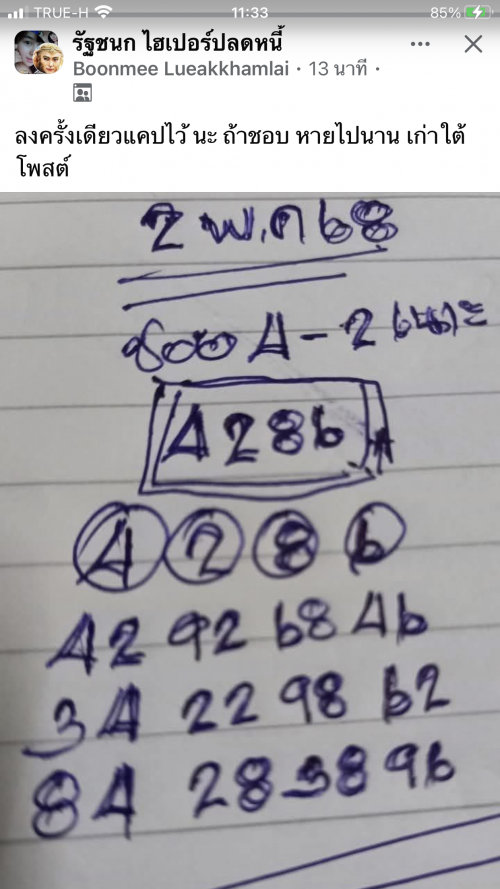 TRUE-H 11:33 85%
รัฐชนก ไฮเปอร์ปลดหนี้
Boonmee Lueakkhamlai · 13 นาที ·
ลงครั้งเดียวแคปไว้ นะ ถ้าชอบ หายไปนาน เก่าใต้
โพสต์
2 พ.ค 68
ชอบ 4 - 2 เน้าะ
4286
4 2 8 6
42 92 68 46
34 22 98 62
84 28 38 96